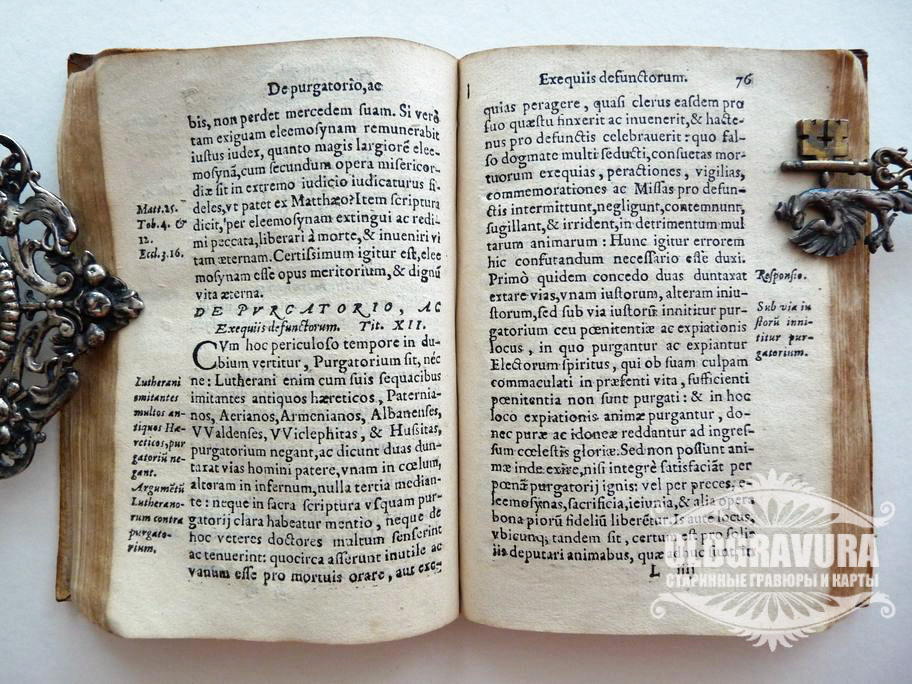 De purgatorio, ac
bis, non perdet mercedem suam. Si verò
tam exiguam eleemosynam remunerabit
iustus iudex, quanto magis largiorē elee-
mosynā, cum secundum opera misericor-
diæ sit in extremo iudicio iudicaturus fi-
deles, vt patet ex Matthæo? Item scriptura
dicit, per eleemosynam extingui ac redi-
mi peccata, liberari à morte, & inueniri vi
tam æternam. Certissimum igitur est, elee
mosynam esse opus meritorium, & dignū
vita æterna.
Matt. 25.
Tob. 4. &
12.
Eccl. 3. 16.
DE PVRGATORIO, AC
Exequiis defunctorum. Tit. XII.
CVm hoc periculoso tempore in du-
bium vertitur, Purgatorium sit, néc
ne: Lutherani enim cum suis sequacibus
imitantes antiquos hæreticos, Paternia-
nos, Aerianos, Armenianos, Albanenses,
VValdenses, VViclephitas, & Hussitas,
purgatorium negant, ac dicunt duas dun-
taxat vias homini patere, vnam in cœlum,
alteram in infernum, nulla tertia median-
te: neque in sacra scriptura vsquam pur-
gatorij clara habeatur mentio, neque de
hoc veteres doctores multum senserint
ac tenuerint: quocirca asserunt inutile ac
vanum esse pro mortuis orare, aut exe-
Lutherani
imitantes
multos an-
tiquos Hæ-
reticos, pur
gatoriū ne-
gant.
Argumētū
Lutherano-
rum contra
purgato-
rium.
Exequiis defunctorum. 76
quias peragere, quasi clerus easdem pro
suo quæstu finxerit ac inuenerit, & hacte-
nus pro defunctis celebrauerit: quo fal-
so dogmate multi seducti, consuetas mor-
tuorum exequias, peractiones, vigilias,
commemorationes ac Missas pro defun-
ctis intermittunt, negligunt, contemnunt,
sugillant, & irrident, in detrimentum mul
tarum animarum: Hunc igitur errorem
hic confutandum necessario esse duxi.
Primò quidem concedo duas duntaxat
extare vias, vnam iustorum, alteram iniu-
storum, sed sub via iustorū innititur pur-
gatorium ceu pœnitentiæ ac expiationis
locus, in quo purgantur ac expiantur
Electorum spiritus, qui ob suam culpam
commaculati in præsenti vita, sufficienti
pœnitentia non sunt purgati: & in hoc
loco expiationis animæ purgantur, do-
nec puræ ac idoneæ reddantur ad ingres-
sum cœlestis gloriæ. Sed non possunt ani-
mæ inde exire, nisi integrè satisfaciāt per
pœnā purgatorij ignis: vel per preces, e-
leemosynas, sacrificia, ieiunia, & alia opera
bona piorū fideliū liberētur. Is autē locus,
vbicunq; tandem sit, certum est pro solis
iis deputari animabus, quæ adhuc sunt in
L iiii
Responsio.
Sub via iu
storū inni-
titur pur-
gatorium.
OLDGRAVURA
СТАРИННЫЕ ГРАВЮРЫ И КАРТЫ